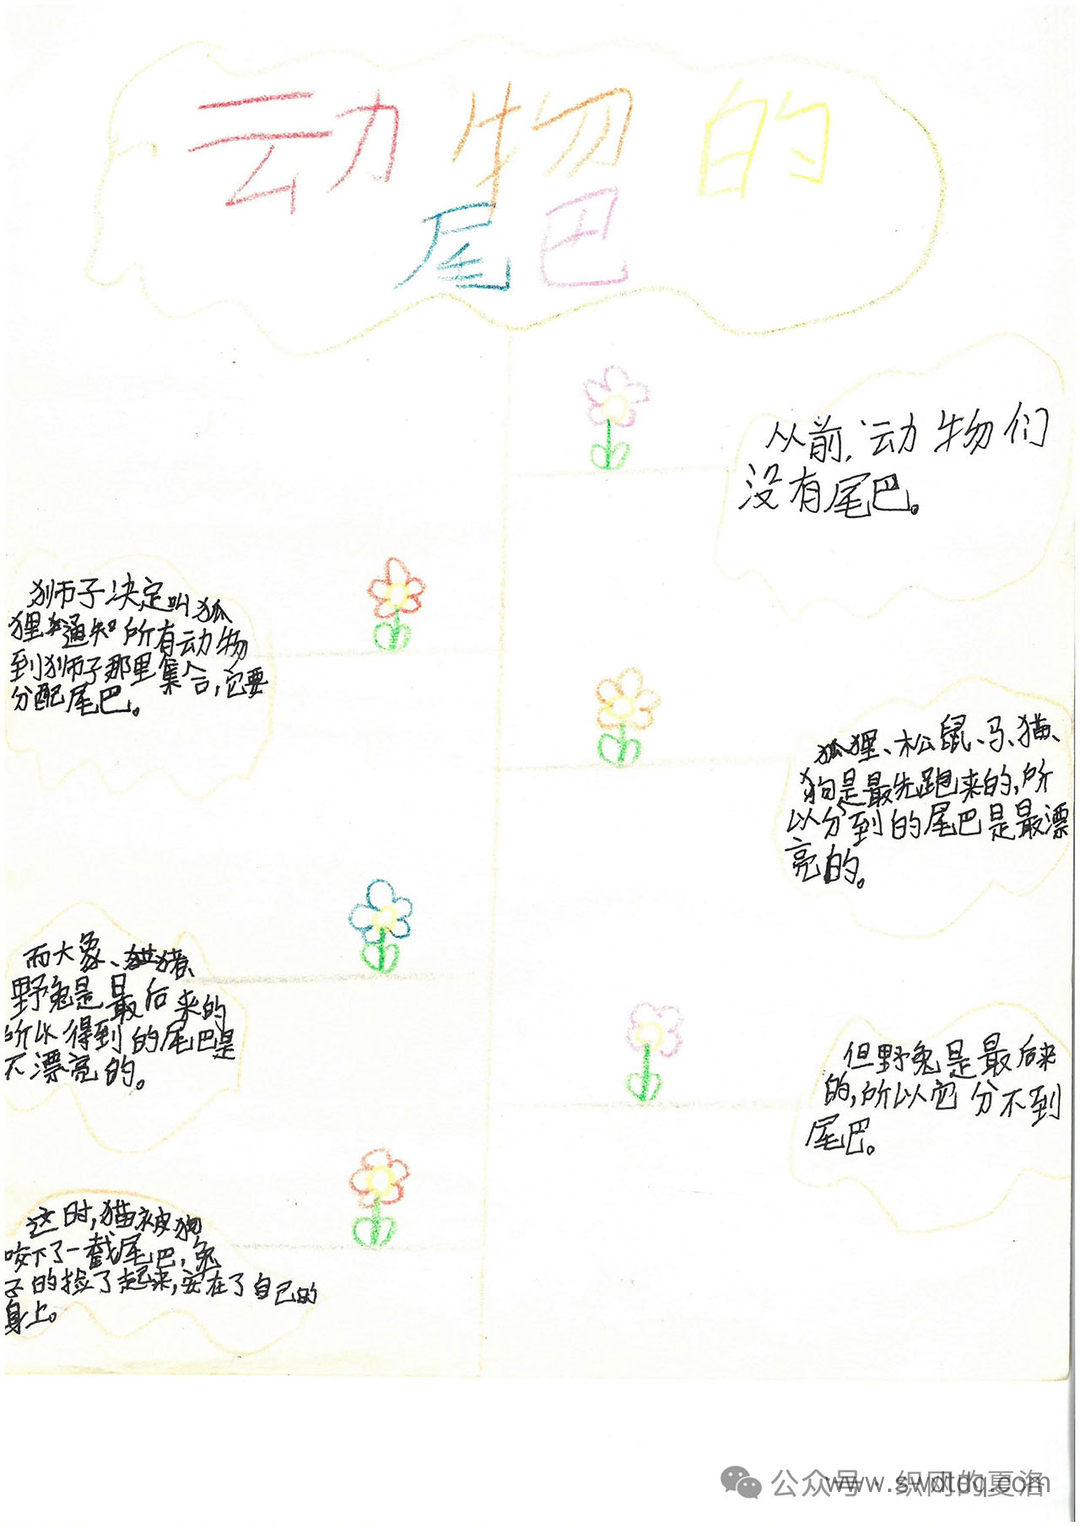 动物的
尾巴
从前，动物们
没有尾巴。
狮子决定叫狐
狸通知所有动物
到狮子那里集合，它要
分配尾巴。
狐狸、松鼠、马、猫、
狗是最先跑来的，所
以分到的尾巴是最漂
亮的。
而大象、猪、
野兔是最后来的
所以得到的尾巴是
不漂亮的。
但野兔是最后来
的，所以它分不到
尾巴。
这时，猫被狗
咬下了一截尾巴，兔
子的捡了起来，安在了自己的
身上。
公众号·织网的夏洛
www.swptdq.com